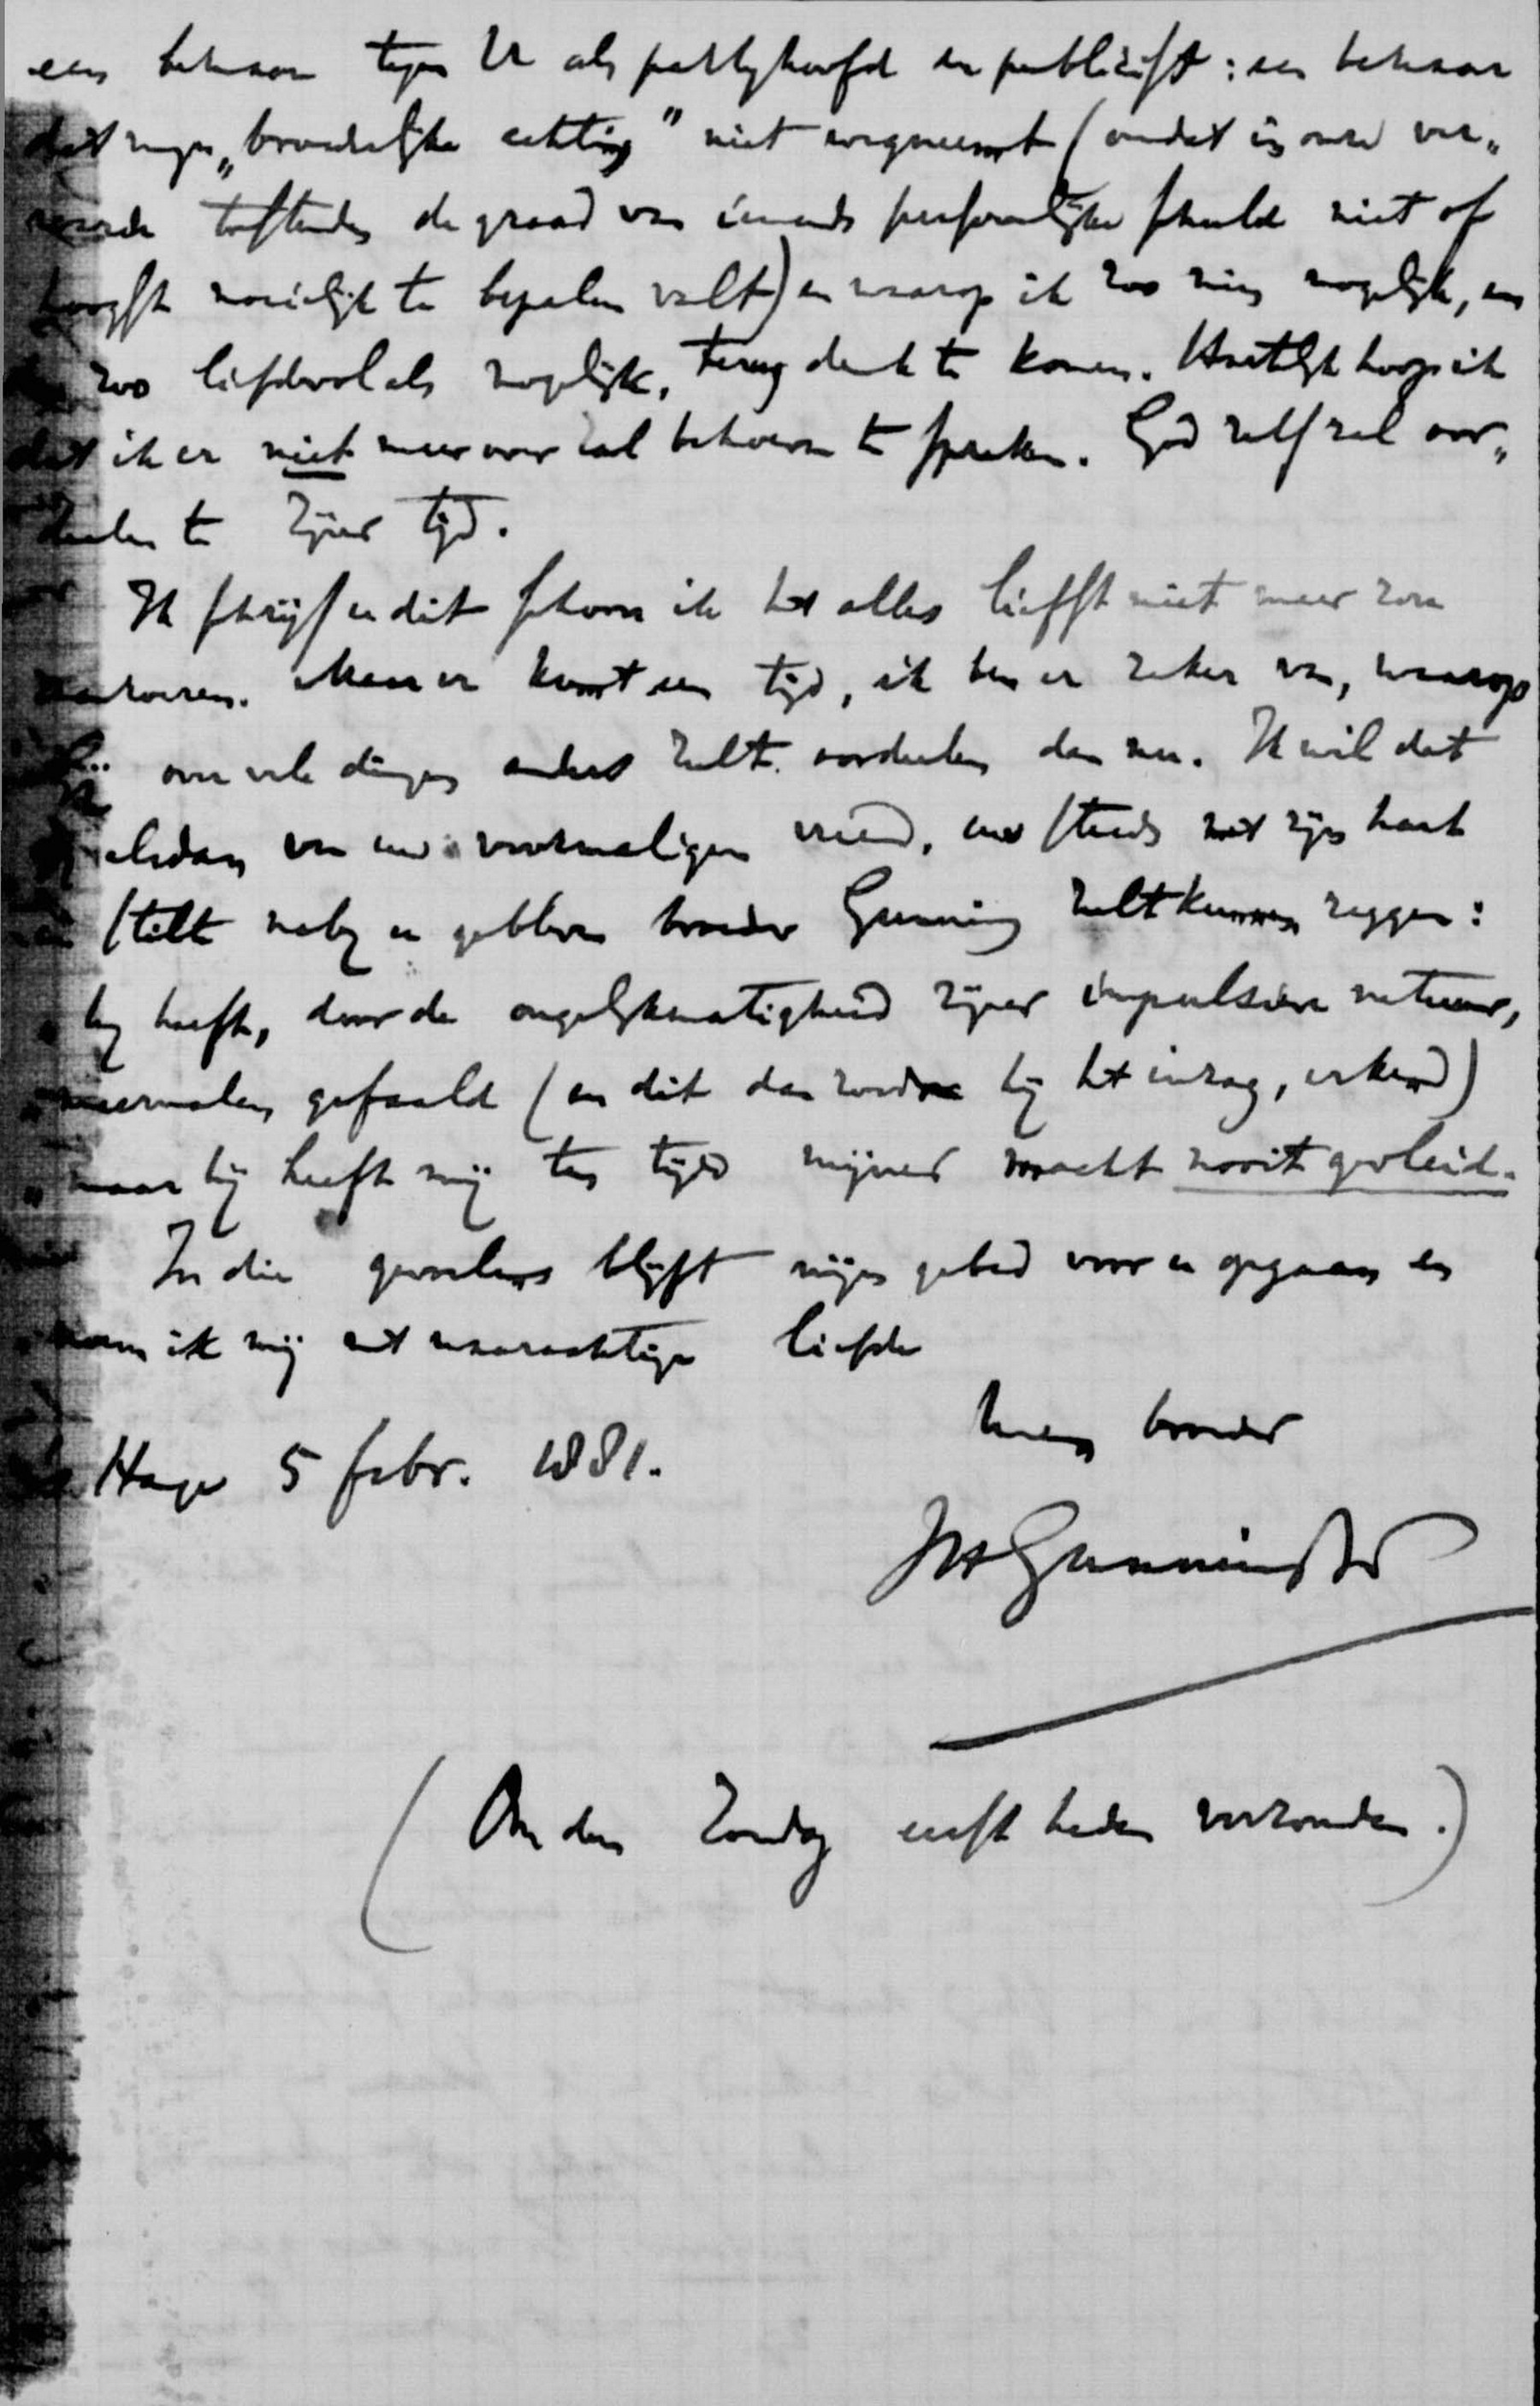 een bezwaar tegen U als partyhoofd en publicist: een bezwaar
dat mijn „broederlijke achting” niet wegneemt (omdat in onze ver„
warde toestanden de graad van iemands persoonlijke schuld niet of
hoogst moeielijk te bepalen valt) en waarop ik zoo min mogelijk, en
zoo liefdevol als mogelijk, terug denk te komen. Hartelijk hoop ik
dat ik er niet meer over zal behoeven te spreken. God zelf zal oor„
deelen te Zijner tijd.
Ik schrijf u dit schoon ik het alles liefst niet meer zou
aanroeren. Maar er komt een tijd, ik ben er zeker van, waarop
Gij over vele dingen anders zult oordeelen dan nu. Ik wil dat
Gij alsdan van uw voormaligen vriend, uw steeds met zijn hart
stille naby u gebleven broeder Gunning zult kunnen zeggen:
„hy heeft, door de ongelijkmatigheid zijner impulsieve natuur,
„meermalen gefaald (en dit dan zoodra hij het inzag, erkend)
„maar hij heeft mij ten tijde mijner macht nooit gevleid.
In die gevoelens blijft mijn gebed voor u opgaan en
noem ik mij met waarachtige liefde
Uwen broeder
Hage 5 febr. 1881.
JH Gunning Jr
(Om den Zondag eerst heden verzonden.)